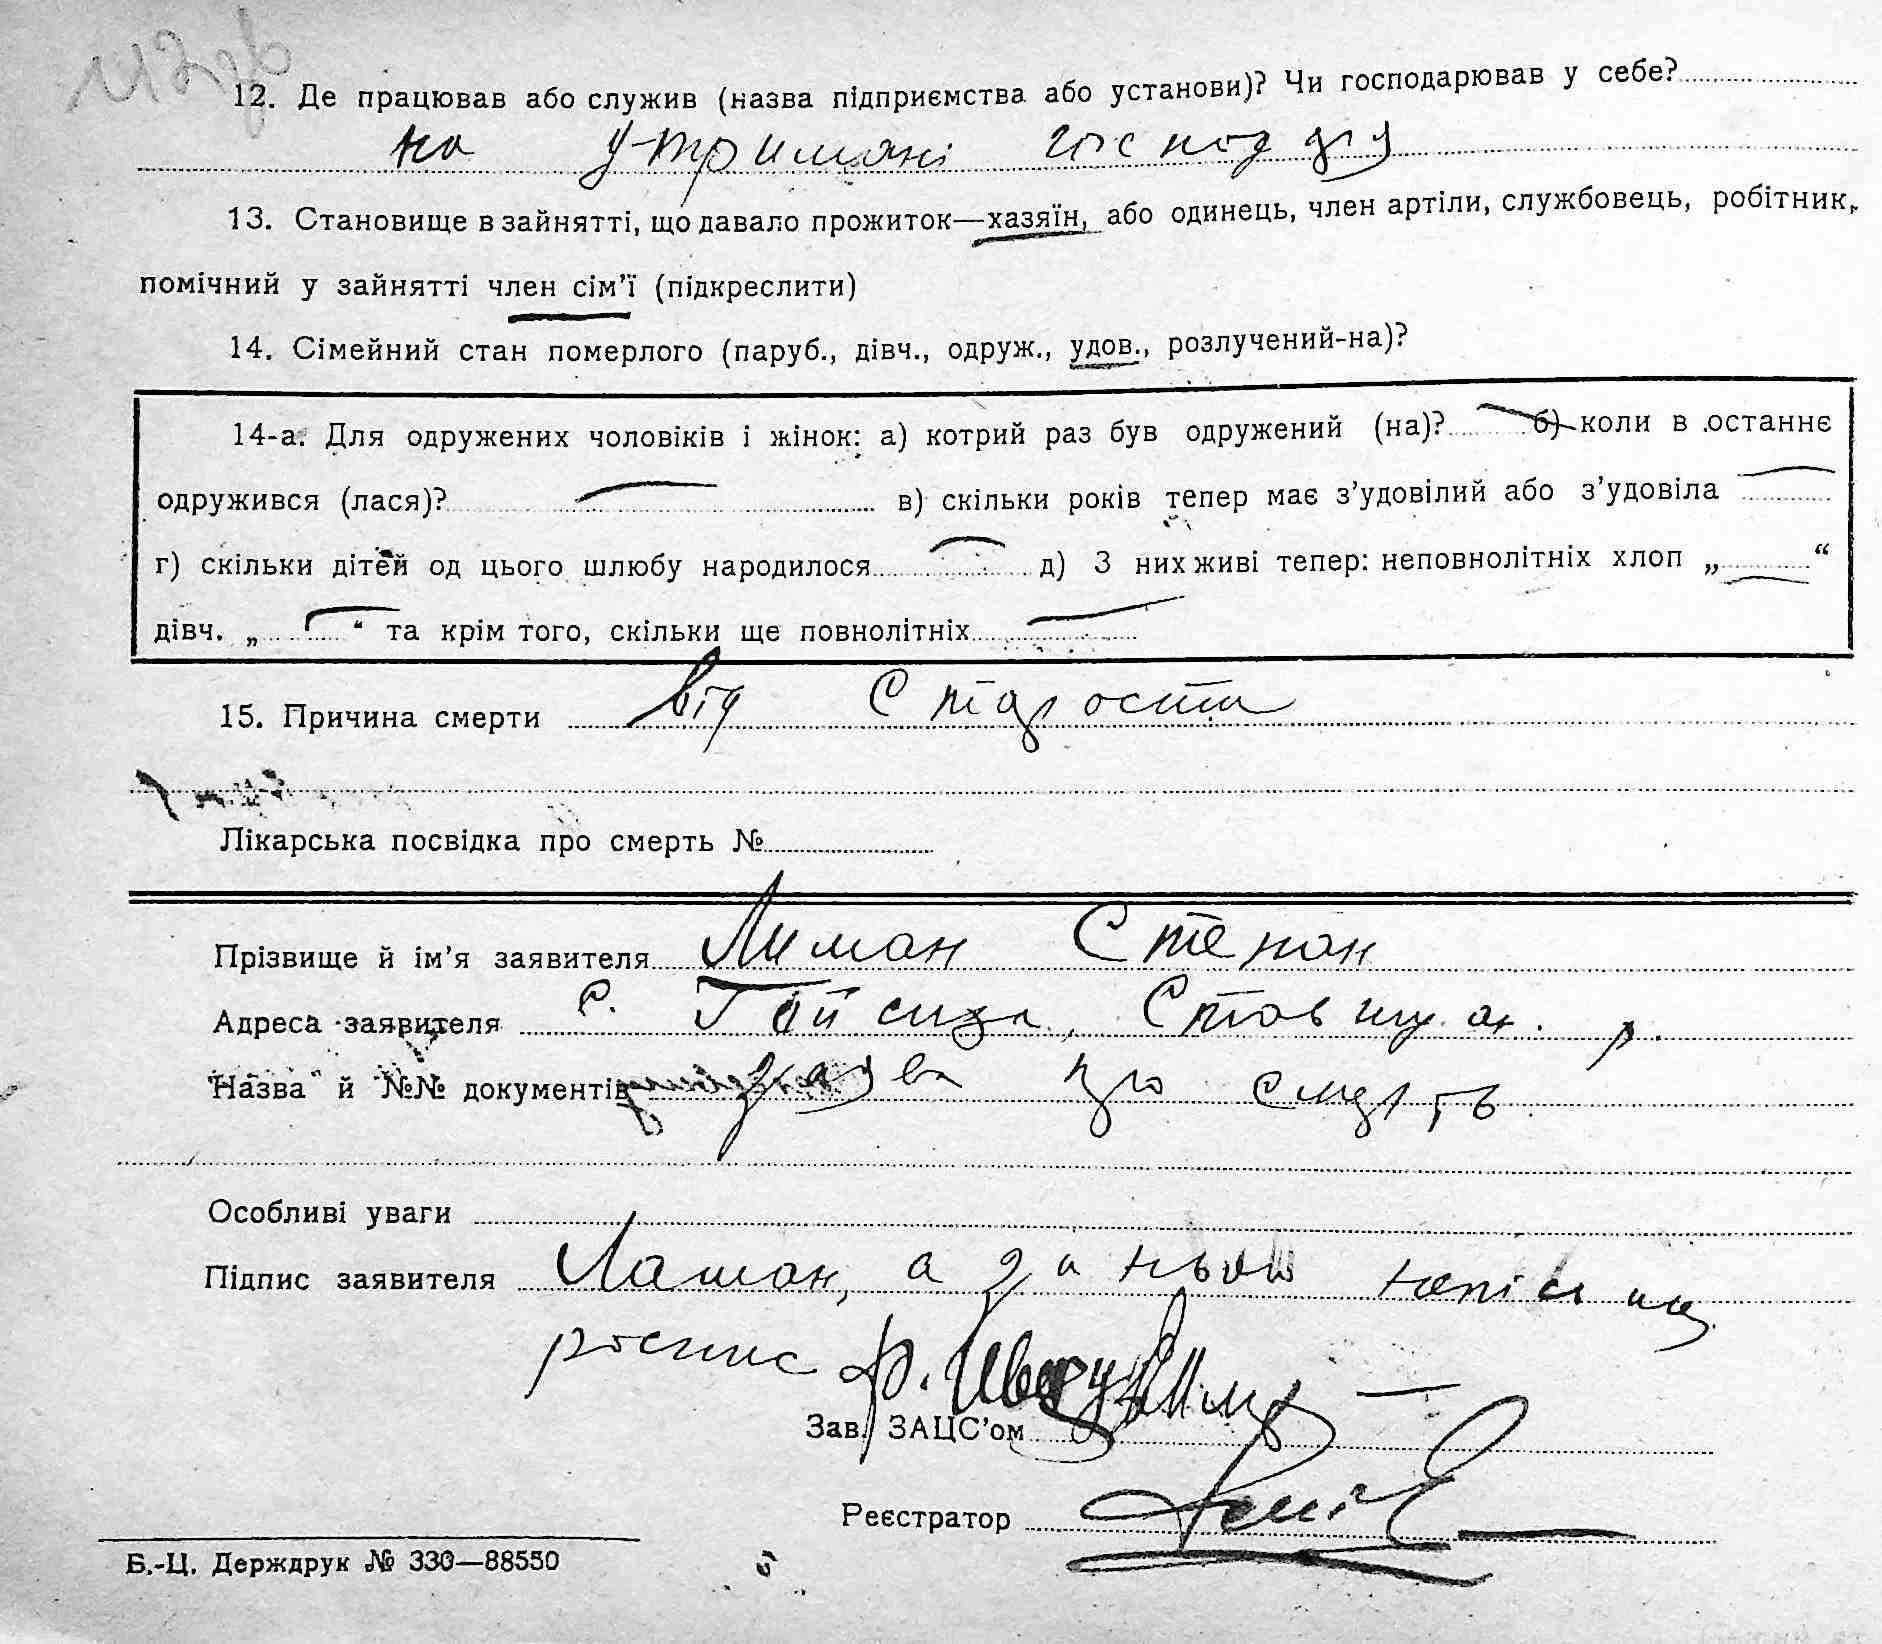 12. Де працював або служив (назва підприємства або установи)? Чи господарював у себе?
на утримані
13. Становище в зайнятті, що давало прожиток—хазяїн, або одинець, член артіли, службовець, робітник,
помічний у зайнятті член сім'ї (підкреслити)
14. Сімейний стан померлого (паруб., дівч., одруж., удов., розлучений-на)?
14-а. Для одружених чоловіків і жінок: а) котрий раз був одружений (на)? б) коли в останнє
одружився (лася)? в) скільки років тепер має з'удовілий або з'удовіла
г) скільки дітей од цього шлюбу народилося д) З них живі тепер: неповнолітніх хлоп „ “
дівч. „ “ та крім того, скільки ще повнолітніх
15. Причина смерти від старости
Лікарська посвідка про смерть №
Прізвище й ім'я заявителя Лиман Степан
Адреса заявителя с. Гайсиха, Ставищан. р.
Назва й №№ документів заява про смерть
Особливі уваги
Підпис заявителя Лашан, а за нього
роспис
Зав. ЗАЦС'ом
Реєстратор
Б.-Ц. Держдрук № 330—88550